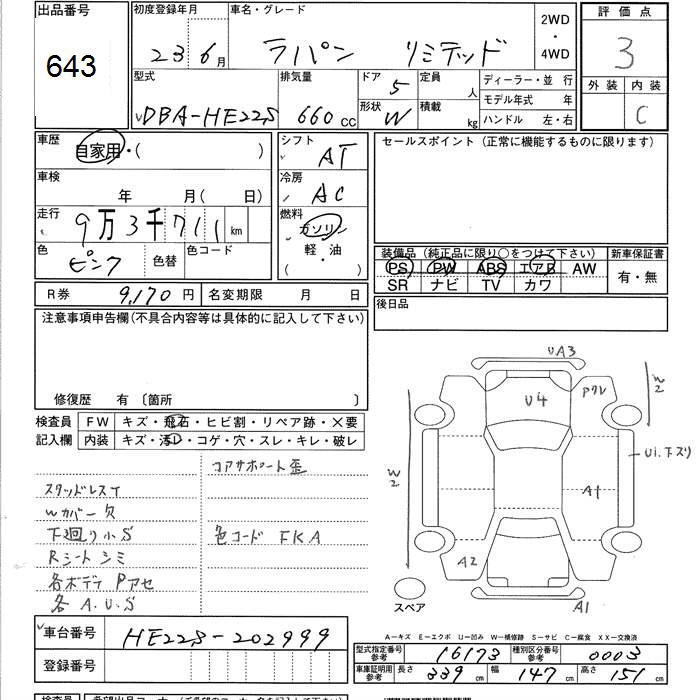 出品番号
643
初度登録年月
23 6月
車名・グレード
ラパン リミテッド
2WD
・
4WD
評価点
3
外装 内装
C
型式
DBA-HE22S
排気量
660 CC
ドア 5
形状 W
定員 人
積載 kg
ディーラー・並 行
モデル年式 年
ハンドル 左・右
車歴
自家用・( )
シフト
AT
車検
年 月( 日)
冷房
AC
走行
9万3千711 km
燃料
ガソリン
軽・油
( )
色
ピンク
色替
色コード
セールスポイント(正常に機能するものに限ります)
装備品(純正品に限り○をつけて下さい)
PS PW ABS エアB AW
SR ナビ TV カワ
新車保証書
有・無
R券 9,170円
名変期限 月 日
後日品
注意事項申告欄(不具合内容等は具体的に記入して下さい)
修復歴 有〔箇所 〕
検査員
記入欄
FW キズ・飛石・ヒビ割・リペア跡・✕要
内装 キズ・汚レ・コゲ・穴・スレ・キレ・破レ
コアサポート歪
スタッドレスT
Wカバー欠
下廻り小S
色コード FKA
Rシートシミ
各ボデーPアセ
各A.U.S
UA3
U4
Pクレ
W2
W2
Ui.下ズリ
A1
A2
A1
スペア
A－キズ E－エクボ U－凹み W－補修跡 S－サビ C－腐食 XX－交換済
車台番号
HE22S-202999
登録番号
型式指定番号
参考
16173
種別区分番号
参考
0003
車庫証明用
参考
長さ 339 cm
幅 147 cm
高さ 151 cm